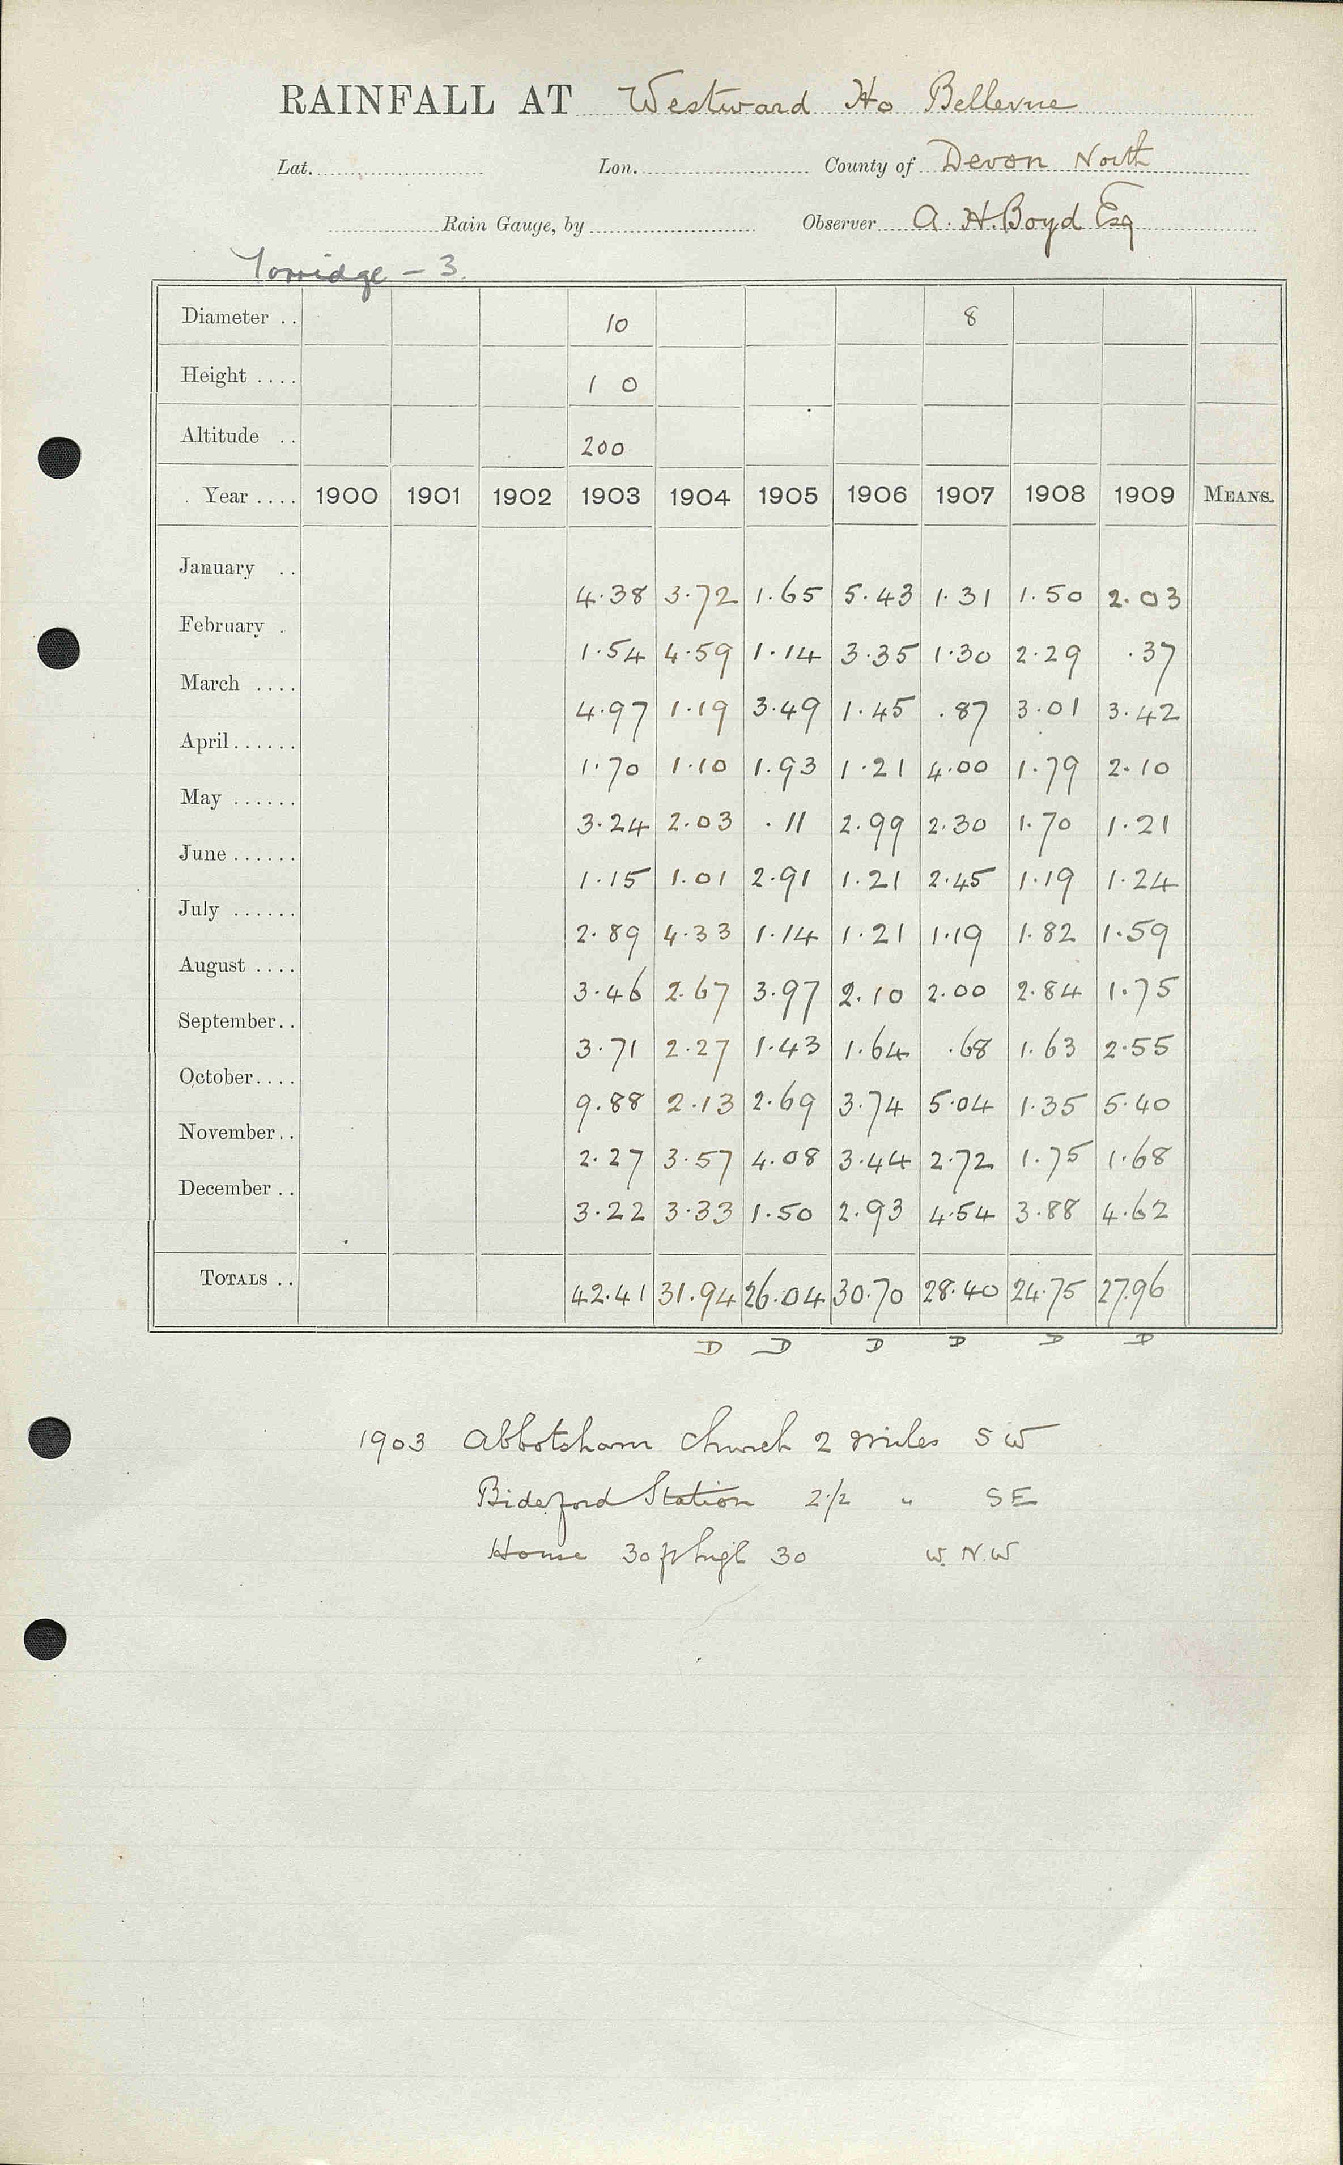 RAINFALL AT Westward Ho Bellevue
Lat. Lon. County of Devon North
Rain Gauge, by Observer A. H. Boyd Esq
Torridge - 3.
Diameter .. 10 8
Height .... 1 0
Altitude .. 200
Year .... 1900 1901 1902 1903 1904 1905 1906 1907 1908 1909 MEANS.
January .. 4.38 3.72 1.65 5.43 1.31 1.50 2.03
February . 1.54 4.59 1.14 3.35 1.30 2.29 .37
March .... 4.97 1.19 3.49 1.45 .87 3.01 3.42
April...... 1.70 1.10 1.93 1.21 4.00 1.79 2.10
May ...... 3.24 2.03 .11 2.99 2.30 1.70 1.21
June...... 1.15 1.01 2.91 1.21 2.45 1.19 1.24
July ...... 2.89 4.33 1.14 1.21 1.19 1.82 1.59
August .... 3.46 2.67 3.97 2.10 2.00 2.84 1.75
September.. 3.71 2.27 1.43 1.64 .68 1.63 2.55
October.... 9.88 2.13 2.69 3.74 5.04 1.35 5.40
November.. 2.27 3.57 4.08 3.44 2.72 1.75 1.68
December .. 3.22 3.33 1.50 2.93 4.54 3.88 4.62
TOTALS .. 42.41 31.94 26.04 30.70 28.40 24.75 27.96
D D D D D D
1903 Abbotsham Church 2 miles SW
Bideford Station 2 1/2 " SE
House 30 ft high 30 W.N.W